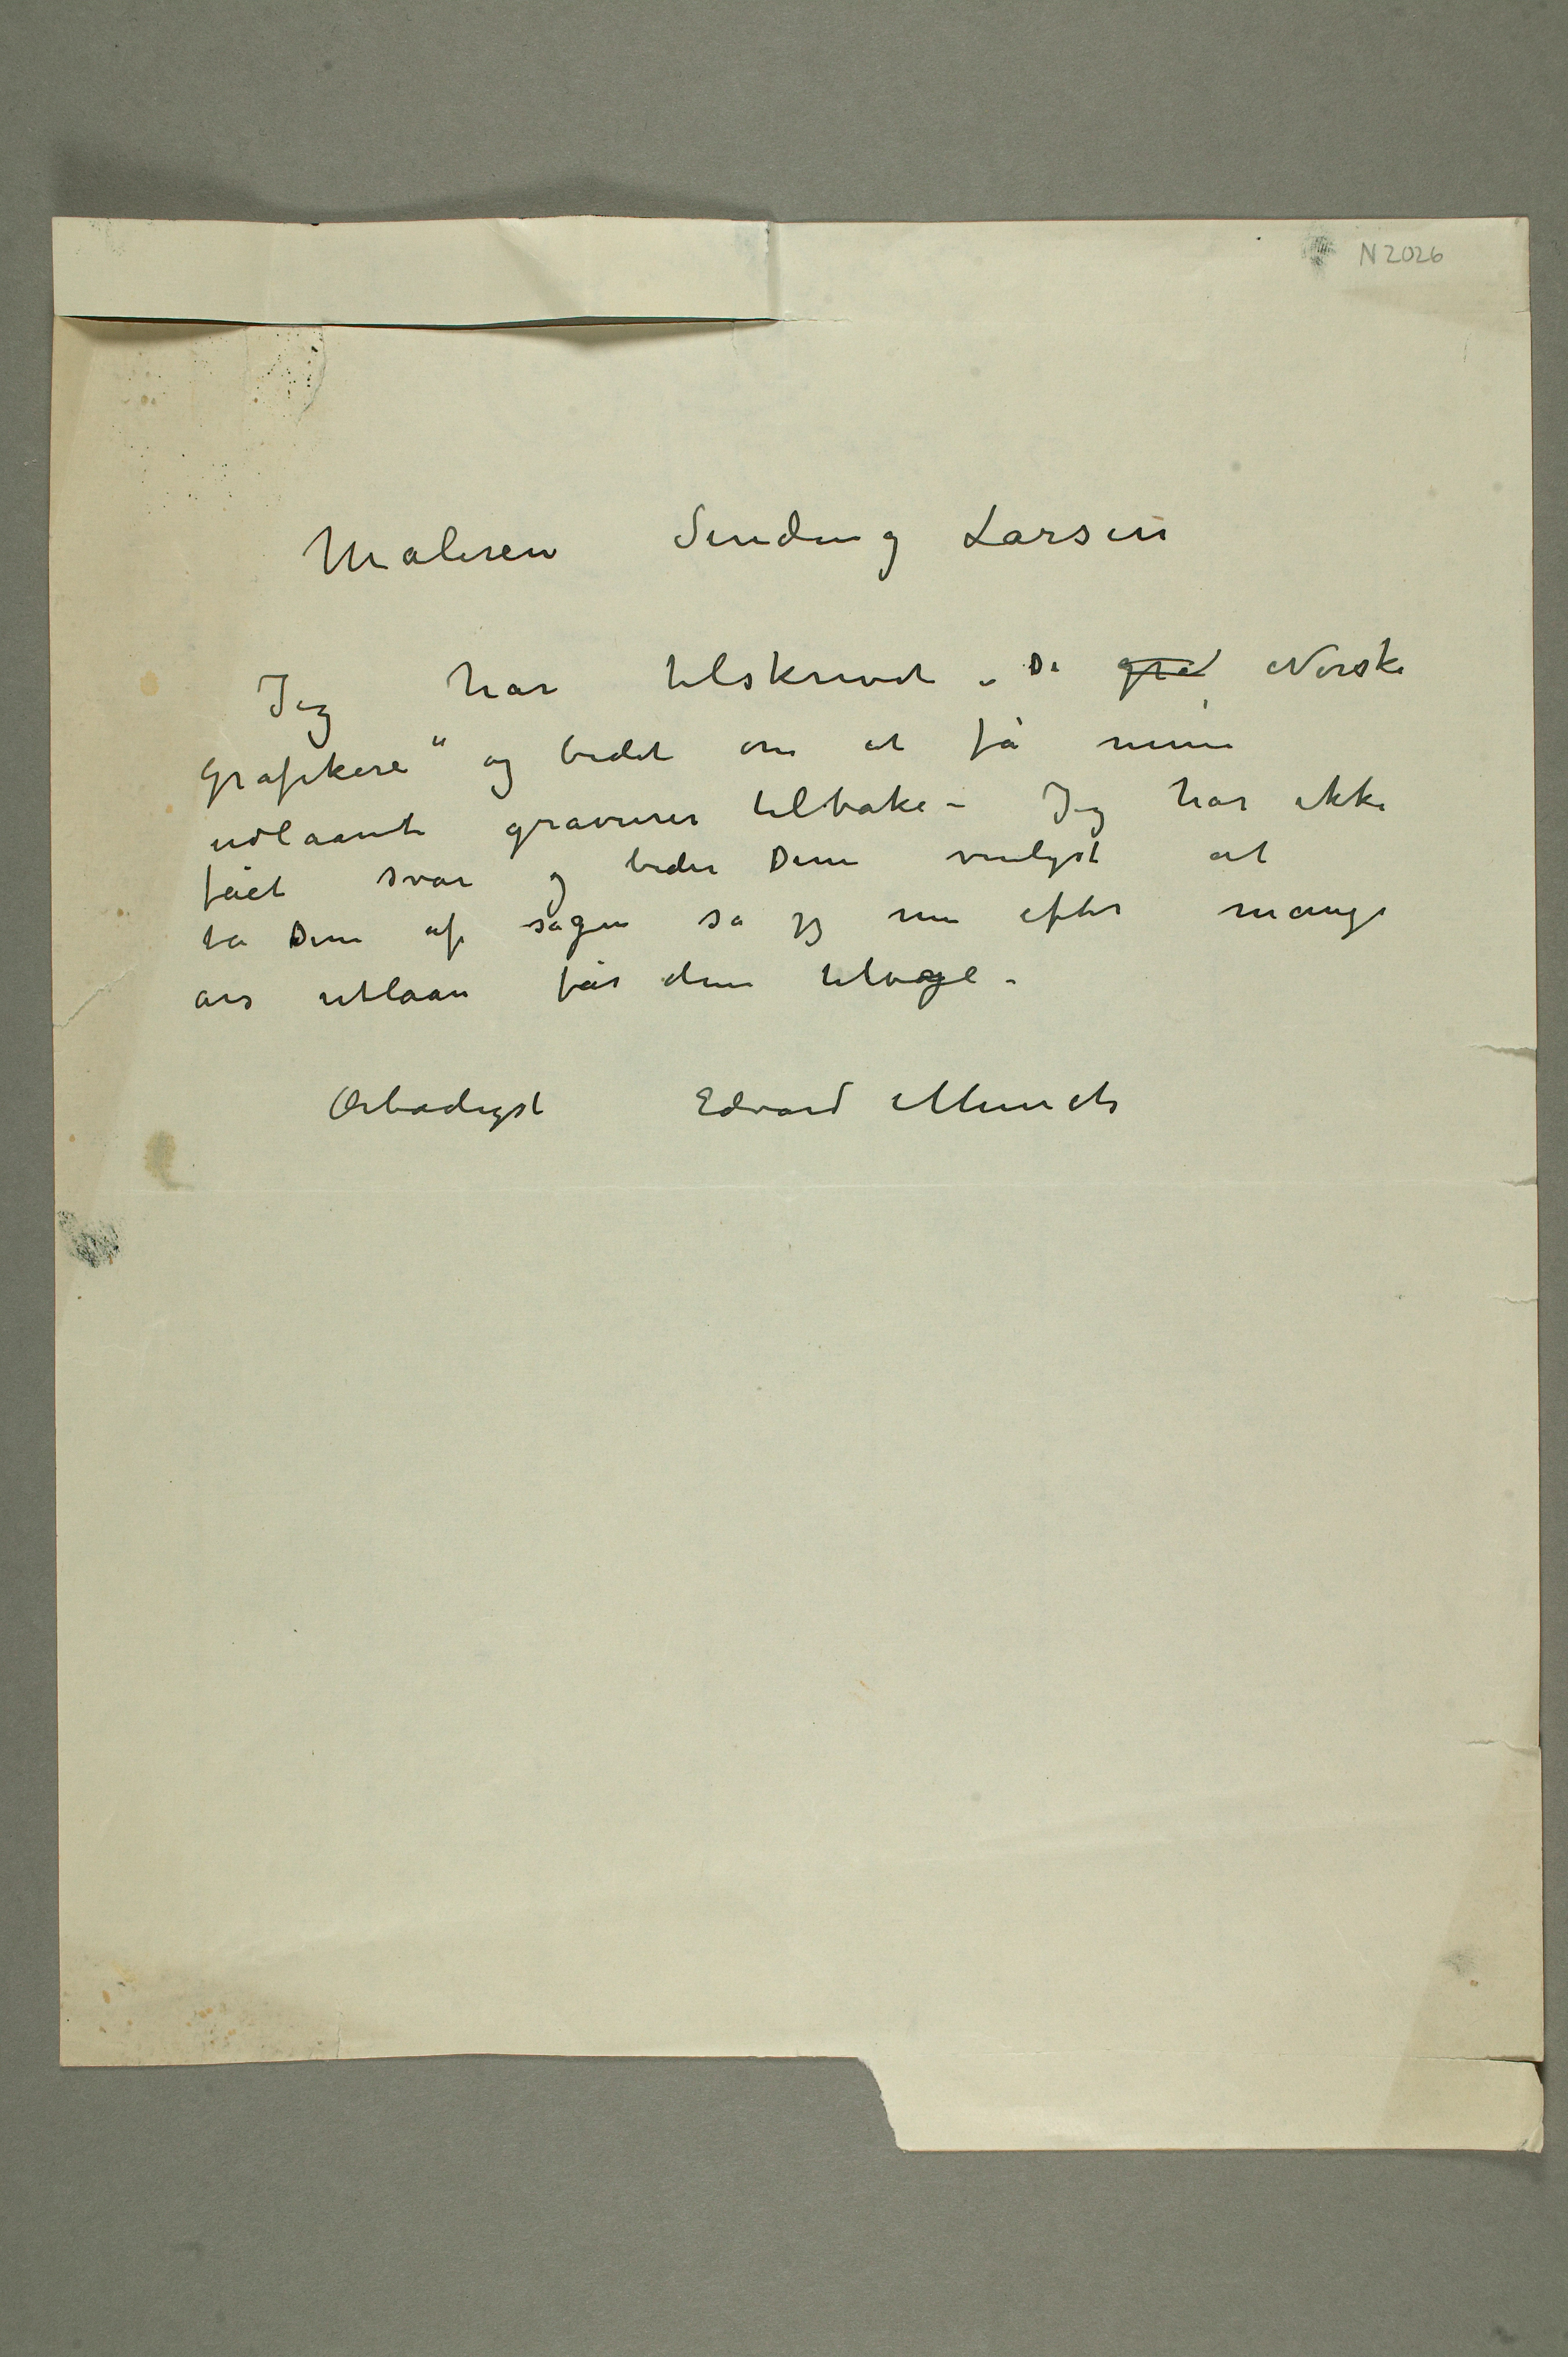 N 2026
Maleren Sinding Larsen
Jeg har tilskrevet „De gra Norske
grafikere“ og bedet om at få mine
udlaante gravurer tilbake – Jeg har ikke
fået svar og beder Dem venligst at
ta Dem af sagen så jeg nu efter mange
års utlaan får dem tilbage –
Ærbødigst Edvard Munch